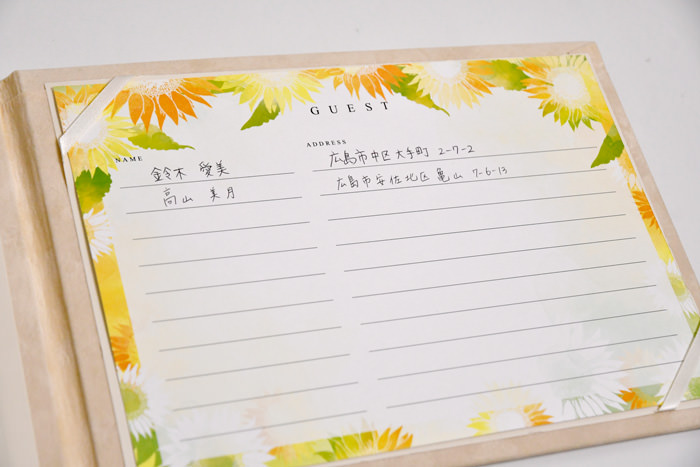 GUEST
NAME ADDRESS
鈴木 愛美 広島市中区大手町 2-7-2
高山 美月 広島市安佐北区亀山 7-6-13